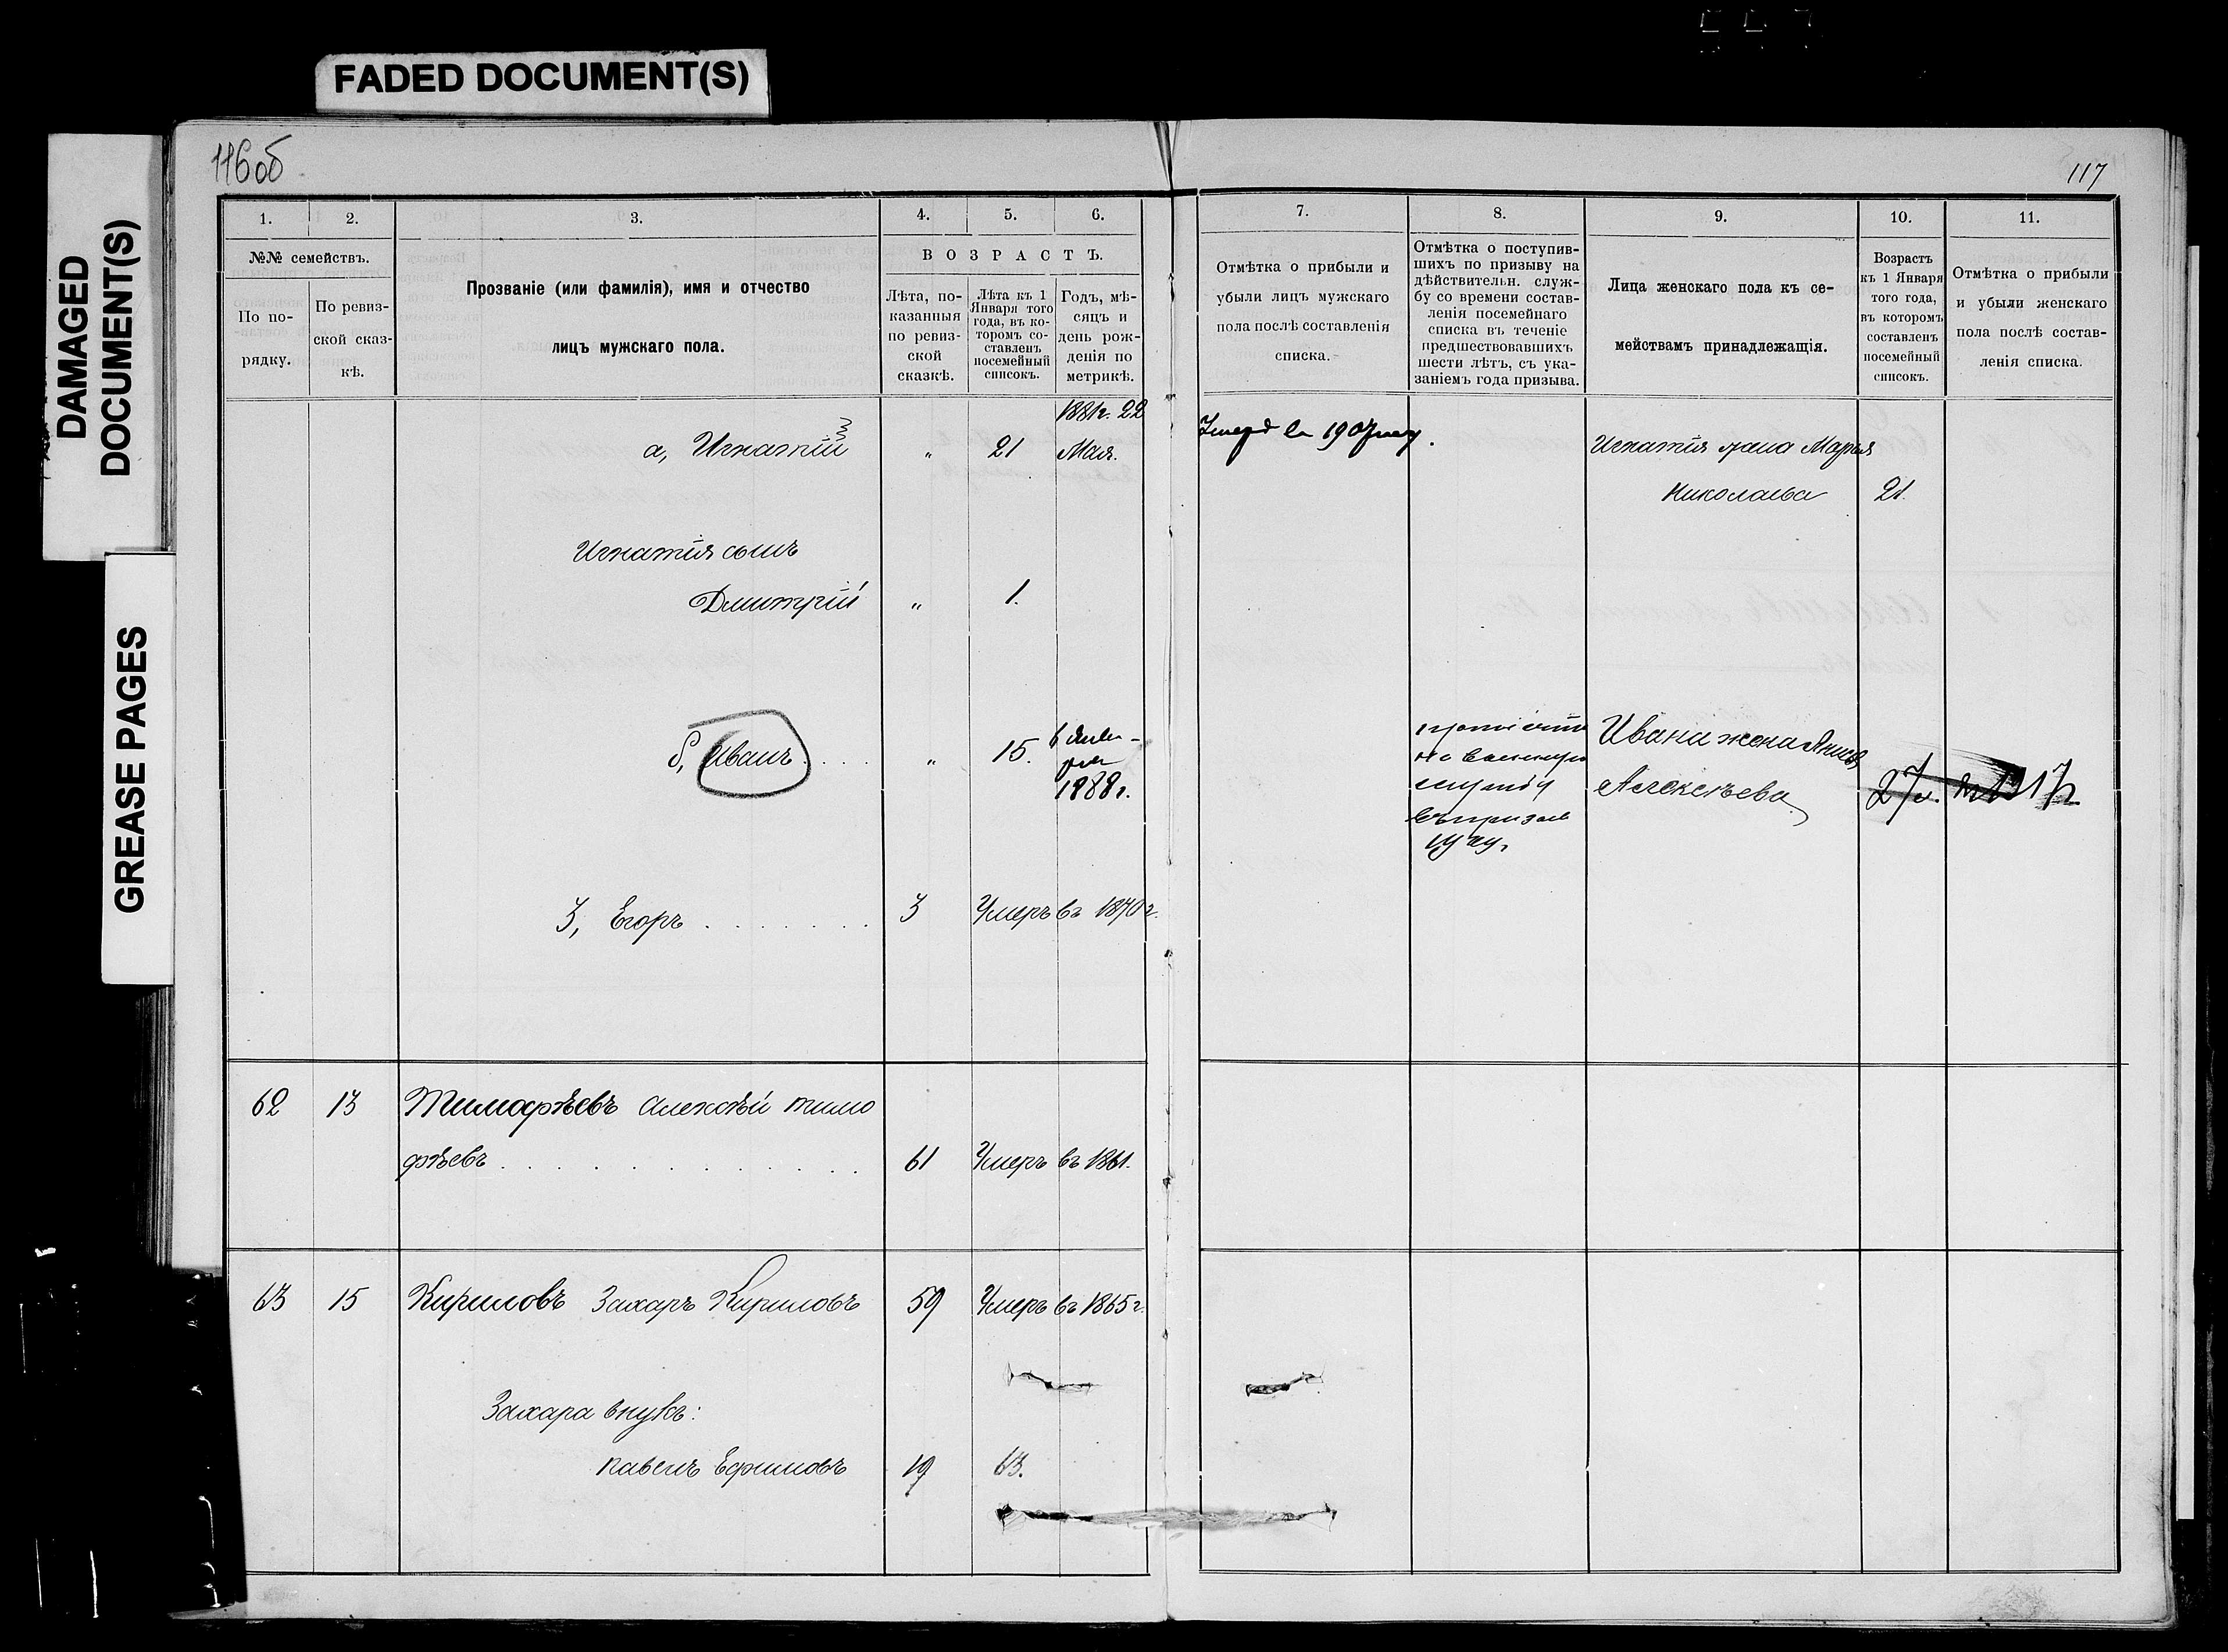 FADED DOCUMENT(S)
DAMAGED
DOCUMENT(S)
GREASE PAGES
116об
117
1.
2.
3.
4.
5.
6.
7.
8.
9.
10.
11.
№№ семействъ.
По по-
рядку.
По ревиз-
ской сказ-
кѣ.
Прозваніе (или фамилія), имя и отчество
лицъ мужскаго пола.
ВОЗРАСТЪ.
Лѣта, по-
казанныя
по ревиз-
ской
сказкѣ.
Лѣта къ 1
Января того
года, въ ко-
торомъ со-
ставленъ
посемейный
списокъ.
Годъ, мѣ-
сяцъ и
день рож-
денія по
метрикѣ.
Отмѣтка о прибыли и
убыли лицъ мужскаго
пола послѣ составленія
списка.
Отмѣтка о поступив-
шихъ по призыву на
дѣйствительн. служ-
бу со времени состав-
ленія посемейнаго
списка въ теченіе
предшествовавшихъ
шести лѣтъ, съ ука-
заніемъ года призыва.
Лица женскаго пола къ се-
мействамъ принадлежащія.
Возрастъ
къ 1 Января
того года,
въ которомъ
составленъ
посемейный
списокъ.
Отмѣтка о прибыли
и убыли женскаго
пола послѣ состав-
ленія списка.
1881г. 22
а, Игнатій " 21 Мая.
Умеръ въ 1907 году.
Игнатія жена Марья
Николаева 21.
Игнатія сынъ
Дмитрій " 1.
б, Иванъ . . . " 15. 6 Янва-
ря
1888г.
Ивана жена
Алексѣева 27
3, Егоръ . . . . . . . 3 Умеръ въ 1870г.
62 13 Тимофѣевъ Алексѣй Тимо
фѣевъ . . . . . . . . . . . . 61 Умеръ въ 1861.
63 15 Кириловъ Захаръ Кириловъ 59 Умеръ въ 1865г.
Захара внукъ:
Павелъ Ефимовъ 19 63.